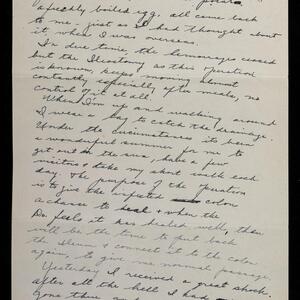 a freshly boiled egg, all came back
to me - just as I had thought about
it when I was overseas.
In due time, the hemorrages ceased
but the Ileostomy as this operation
is known, keeps moving almost
constantly especially after meals, no
control of it at all.
When I'm up and walking around
I wear a bag to catch the drainage
Under the circumstances it's been
a wonderful summer for me to
get out in the sun, have a few
visitors & take my short walk each
day. The purpose of the operation
is to give the infected colon
a chance to heal & when the
Drs. feels it has healed well, then
will be the time to put back
the Ileum & connect it to the colon
again, to give me normal passage.
Yesterday I received a great shock.
after all the hell I had
gone thru